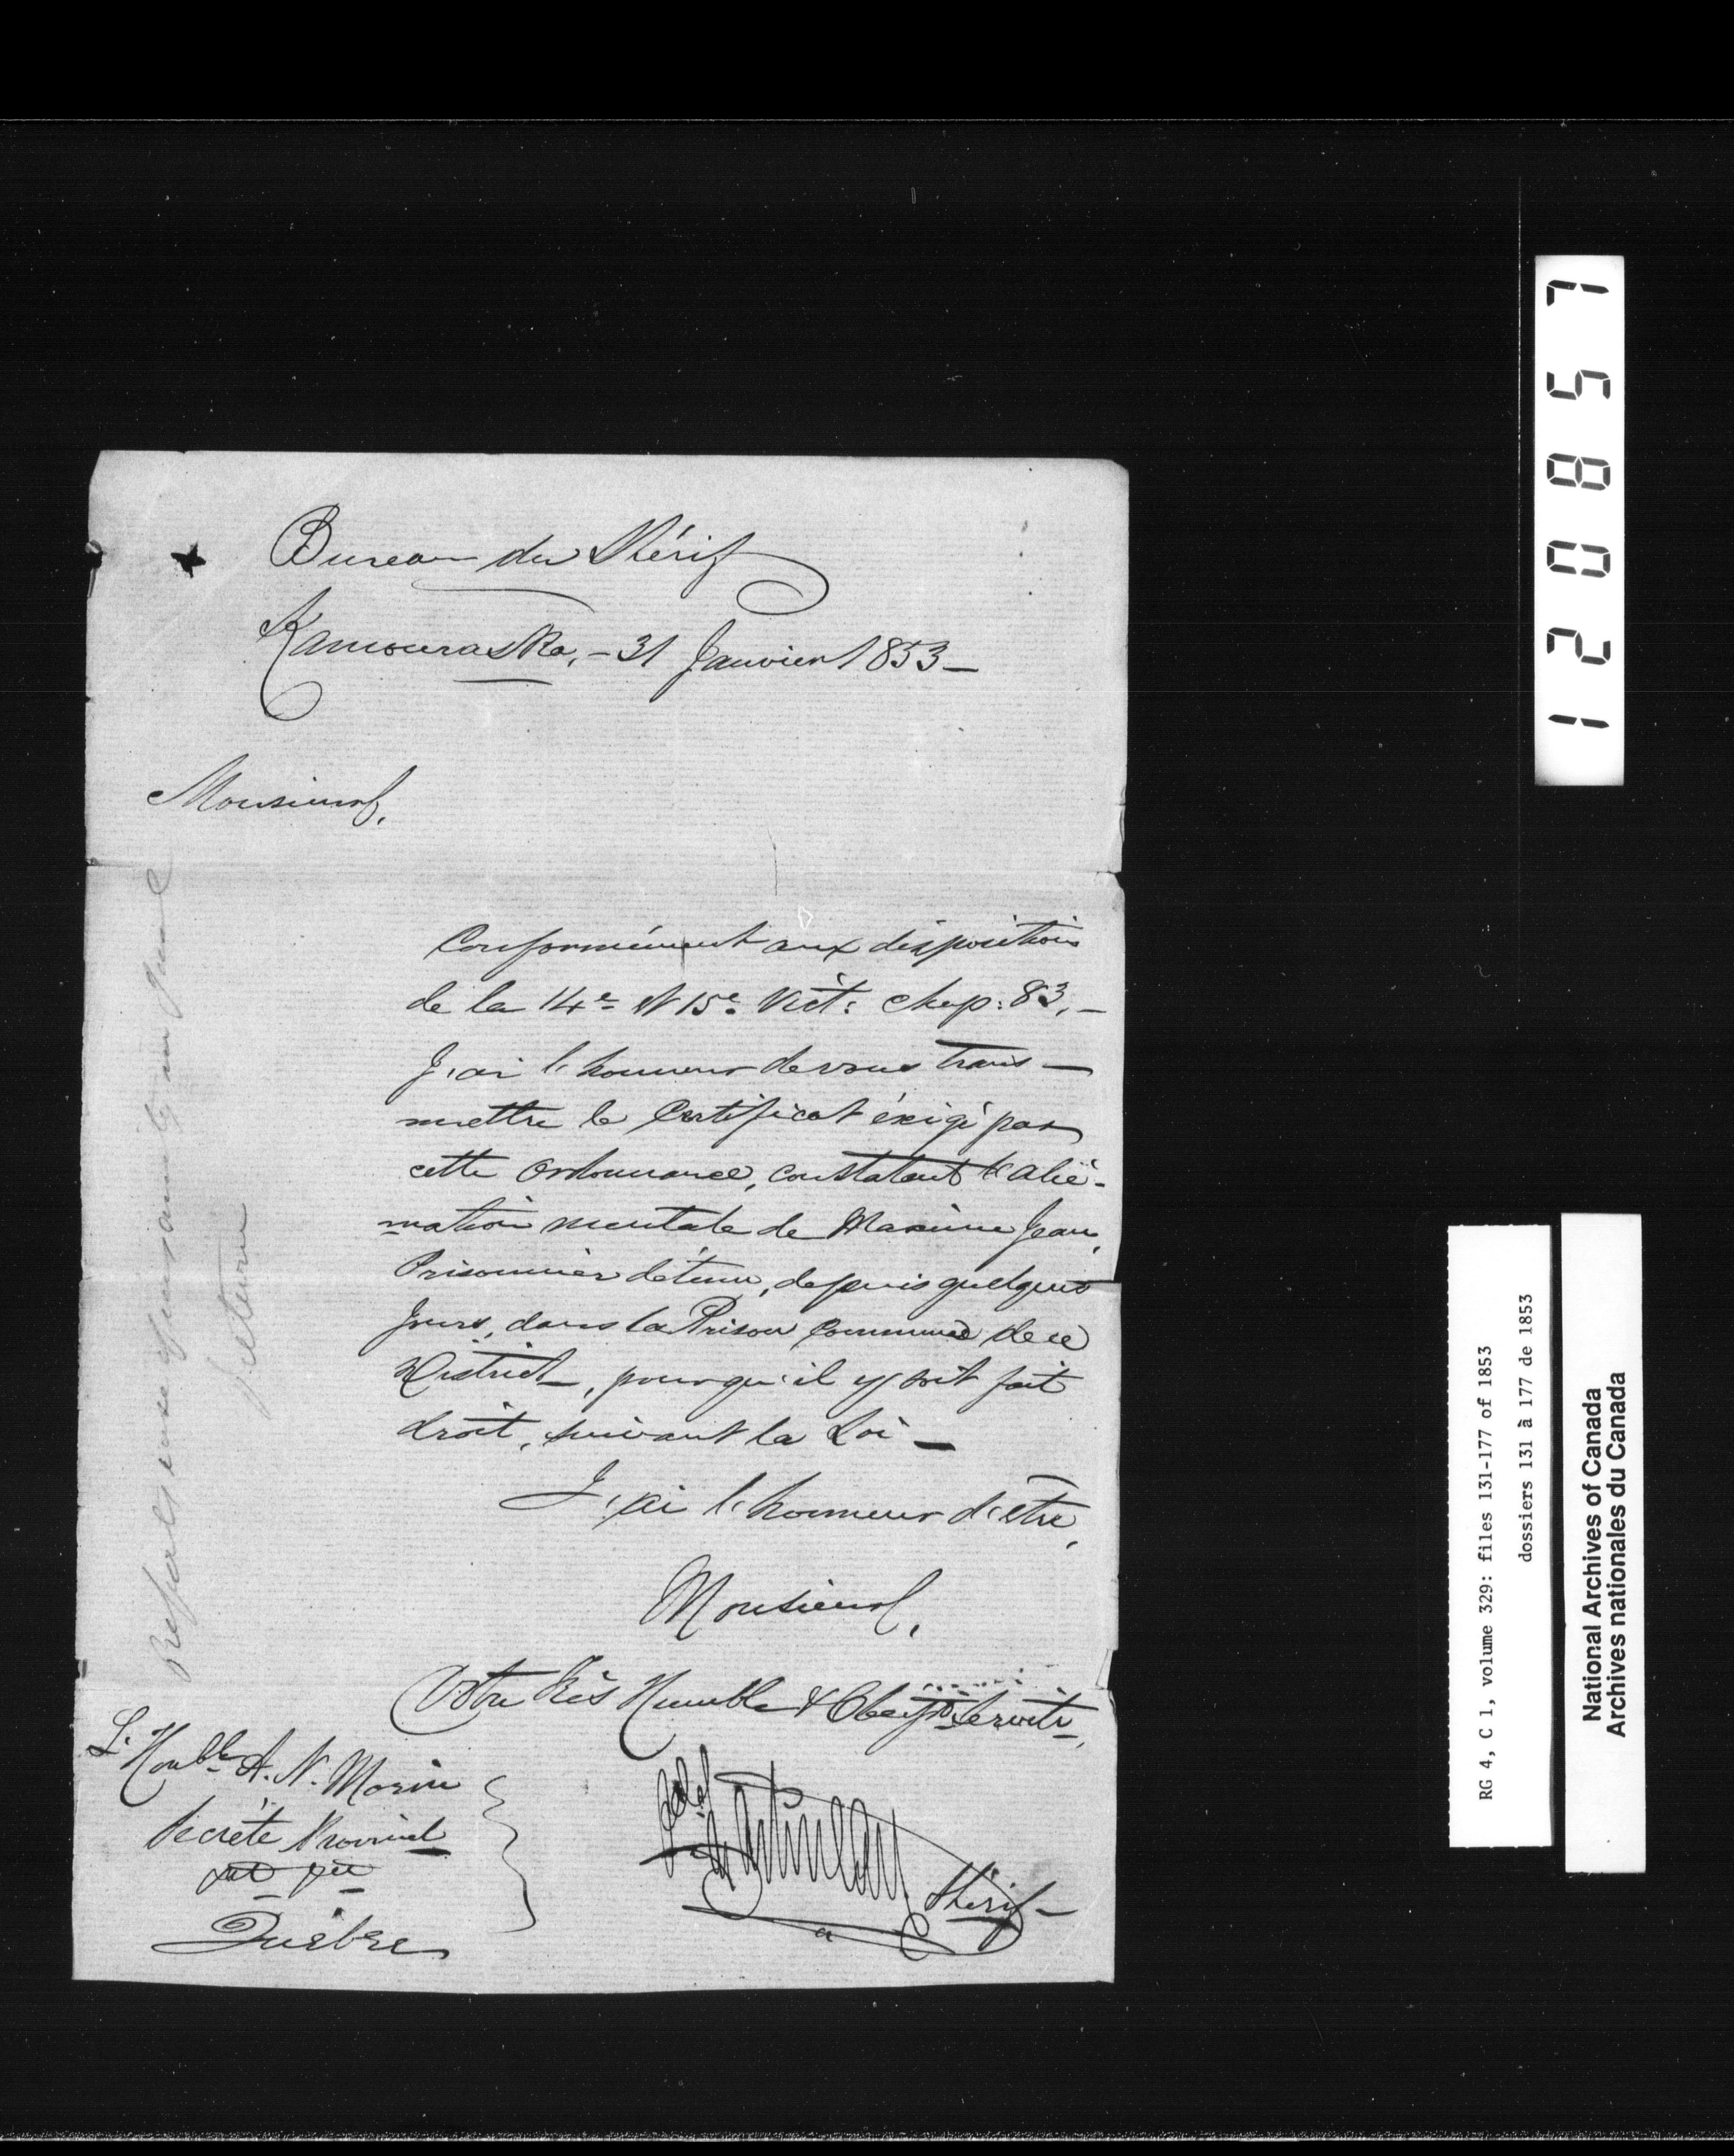 Bureau du Shérif
Kamouraska, - 31 Janvier 1853 -
Monsieur,
Conformément aux dispositions
de la 14e et 15e Vict: Chap: 83, -
J'ai l'honneur de vous trans -
mettre le Certificat éxigé par
cette Ordonnance, constatant l'alié -
nation mentale de Maxime Jean,
Prisonnier détenu, depuis quelques
jours, dans la Prison Commune de ce
District -, pour qu'il y soit fait
droit, suivant la Loi -
J'ai l'honneur d'être,
Monsieur,
Votre très Humble & Obeisst Servitr,
Shérif -
L'Honble A. N. Morin
Secrete Provincial
Québec
120857
RG 4, C 1, volume 329: files 131-177 of 1853
dossiers 131 à 177 de 1853
National Archives of Canada
Archives nationales du Canada